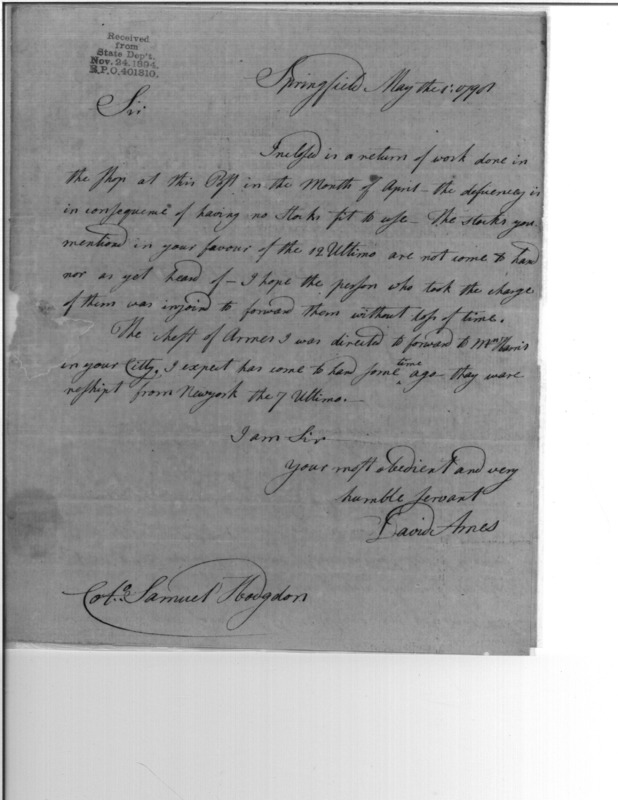 Received
from
State Dep't.
Nov. 24, 1894.
R.P.O. 401810.
Springfield May the 1: 1798
Sir
Inclosed is a return of work done in
the Shop at this Post in the Month of April – the defficiency is
in consequence of having no stocks fit to use – The stocks you
mentiond in your favour of the 12 Ultimo are not come to hand
nor as yet heard of – I hope the person who took the charge
of them was injoind to forward them without loss of time.
The Chest of Armes I was directed to forward to Wm Harris
in your Citty, I expect has come to hand some time ago they ware
reshipt from Newyork the 7 Ultimo. –
I am Sir
Your most obedient and very
humble Servant
David Ames
Samuel Hodgdon